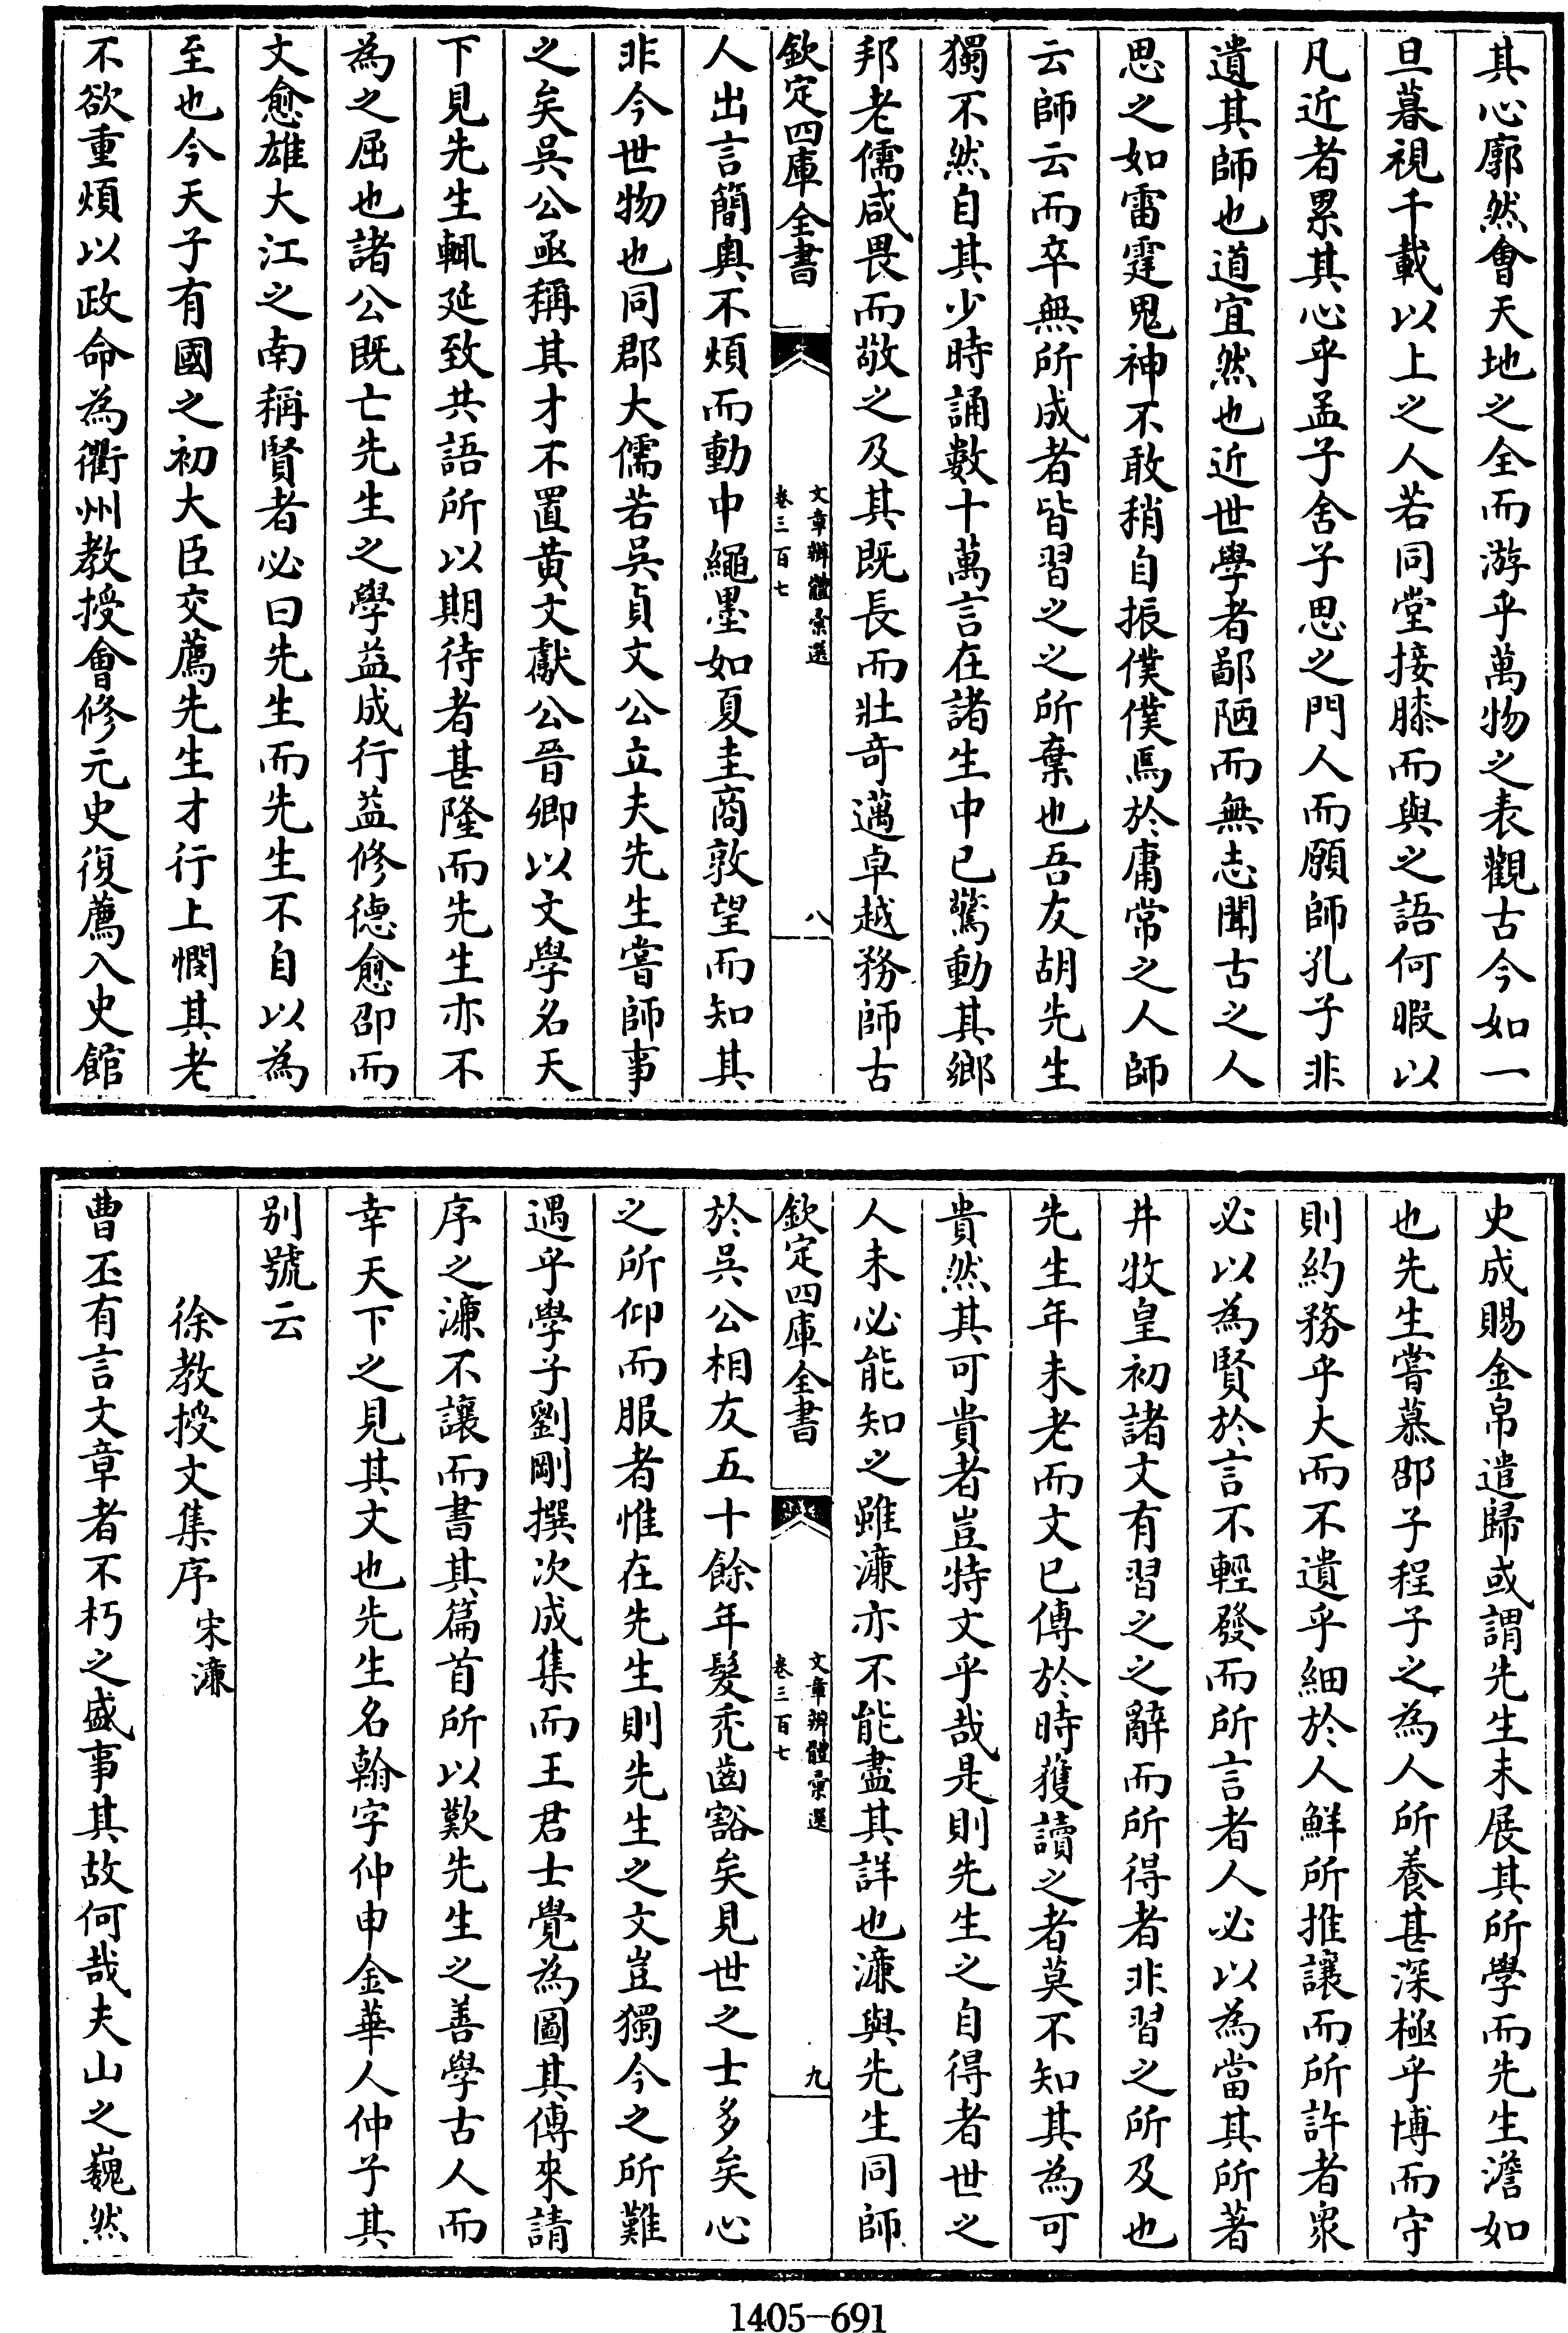 其心廓然會天地之全而游乎萬物之表觀古今如一
旦暮視千載以上之人若同堂接膝而與之語何暇以
凡近者累其心乎孟子舍子思之門人而願師孔子非
遺其師也道宜然也近世學者鄙陋而無志聞古之人
思之如雷霆鬼神不敢稍自振僕僕焉於庸常之人師
云師云而卒無所成者皆習之之所棄也吾友胡先生
獨不然自其少時誦數十萬言在諸生中已驚動其鄉
邦老儒咸畏而敬之及其既長而壯奇邁卓越務師古
欽定四庫全書
文章辨體彙選
卷三百七
八
人出言簡奧不煩而動中繩墨如夏圭商敦望而知其
非今世物也同郡大儒若吳貞文公立夫先生嘗師事
之矣吳公亟稱其才不置黃文獻公晉卿以文學名天
下見先生輒延致共語所以期待者甚隆而先生亦不
為之屈也諸公既亡先生之學益成行益修德愈卲而
文愈雄大江之南稱賢者必曰先生而先生不自以為
至也今天子有國之初大臣交薦先生才行上憫其老
不欲重煩以政命為衢州教授會修元史復薦入史館
史成賜金帛遣歸或謂先生未展其所學而先生澹如
也先生嘗慕邵子程子之為人所養甚深極乎博而守
則約務乎大而不遺乎細於人鮮所推讓而所許者衆
必以為賢於言不輕發而所言者人必以為當其所著
井牧皇初諸文有習之之辭而所得者非習之所及也
先生年未老而文已傳於時獲讀之者莫不知其為可
貴然其可貴者豈特文乎哉是則先生之自得者世之
人未必能知之雖濂亦不能盡其詳也濂與先生同師
欽定四庫全書
文章辨體彙選
卷三百七
九
於吳公相友五十餘年髮禿齒豁矣見世之士多矣心
之所仰而服者惟在先生則先生之文豈獨今之所難
遇乎學子劉剛撰次成集而王君士覺為圖其傳來請
序之濂不讓而書其篇首所以歎先生之善學古人而
幸天下之見其文也先生名翰字仲申金華人仲子其
别號云
徐教授文集序 宋濂
曹丕有言文章者不朽之盛事其故何哉夫山之巍然
1405-691